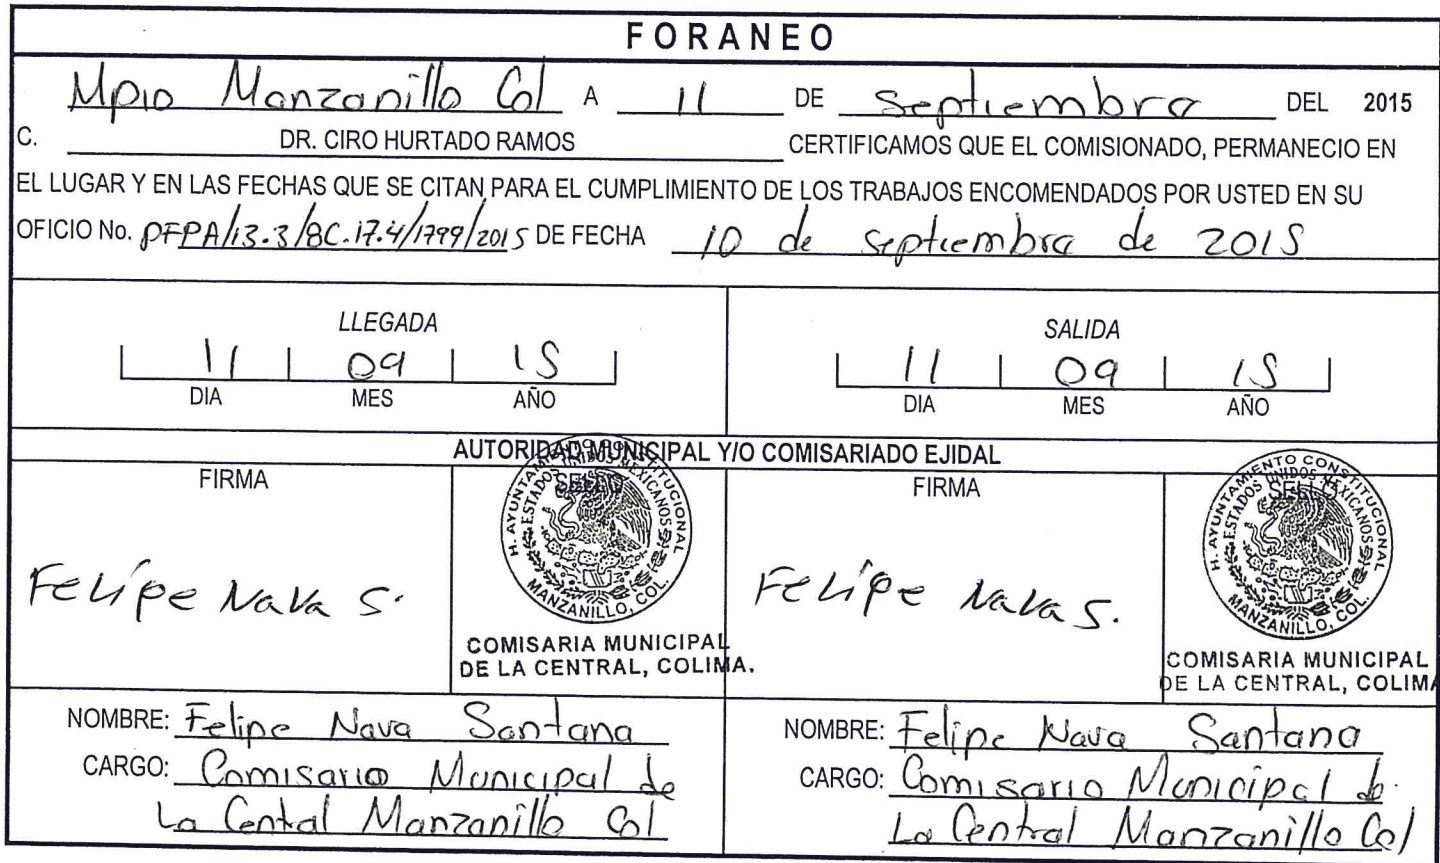 FORANEO
Mpio Manzanillo Col A 11 DE Septiembre DEL 2015
C. DR. CIRO HURTADO RAMOS CERTIFICAMOS QUE EL COMISIONADO, PERMANECIO EN
EL LUGAR Y EN LAS FECHAS QUE SE CITAN PARA EL CUMPLIMIENTO DE LOS TRABAJOS ENCOMENDADOS POR USTED EN SU
OFICIO No. PFPA/13.3/8C.17.4/1799/2015 DE FECHA 10 de septiembre de 2015
LLEGADA
11 09 15
DIA MES AÑO
SALIDA
11 09 15
DIA MES AÑO
AUTORIDAD MUNICIPAL Y/O COMISARIADO EJIDAL
FIRMA
Felipe Nava S.
SELLO
H. AYUNTAMIENTO CONSTITUCIONAL
ESTADOS UNIDOS MEXICANOS
MANZANILLO, COL.
COMISARIA MUNICIPAL
DE LA CENTRAL, COLIMA.
FIRMA
Felipe Nava S.
SELLO
H. AYUNTAMIENTO CONSTITUCIONAL
ESTADOS UNIDOS MEXICANOS
MANZANILLO, COL.
COMISARIA MUNICIPAL
DE LA CENTRAL, COLIMA
NOMBRE: Felipe Nava Santana
CARGO: Comisario Municipal de
La Cental Manzanillo Col
NOMBRE: Felipe Nava Santana
CARGO: Comisario Municipal de
La Central Manzanillo Col